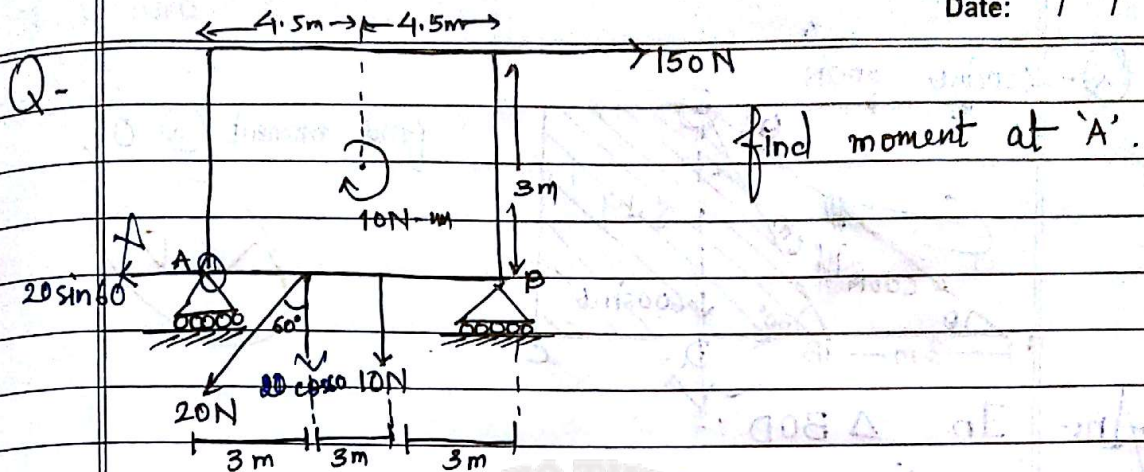 Date: / /
4.5m 4.5m
150N
Q-
find moment at 'A'.
3m
10N-m
A B
20sin60
60°
20N 20 cos60 10N
3m 3m 3m